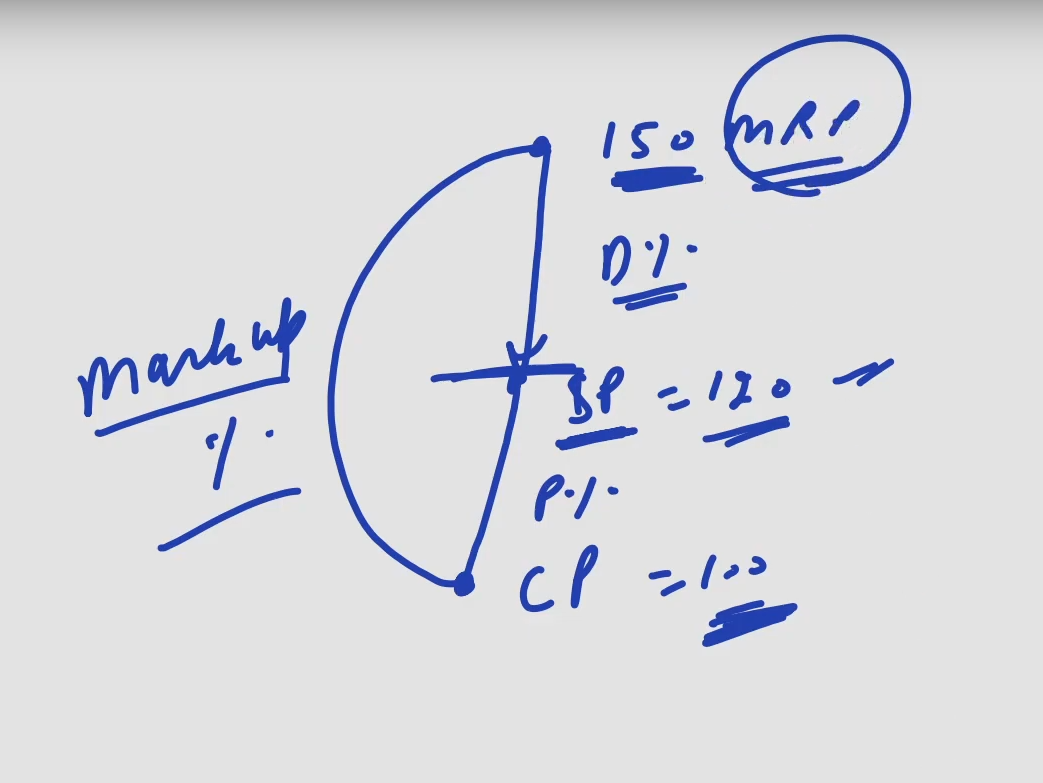 150 MRP
D%
Mark up
%
SP = 120
P%
CP = 100